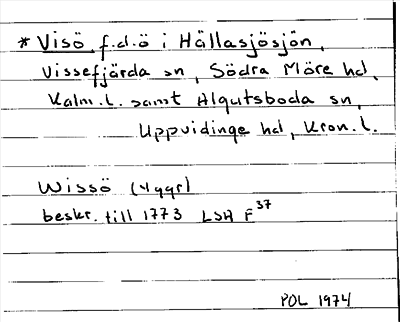 * Visö f.d.ö i Hällasjösjön,
Vissefjärda sn, Södra Möre hd,
Kalm.l. samt Algutsboda sn,
Uppvidinge hd, Kron.l.
Wissö (4ggr)
beskr. till 1773 LSA F37
POL 1974